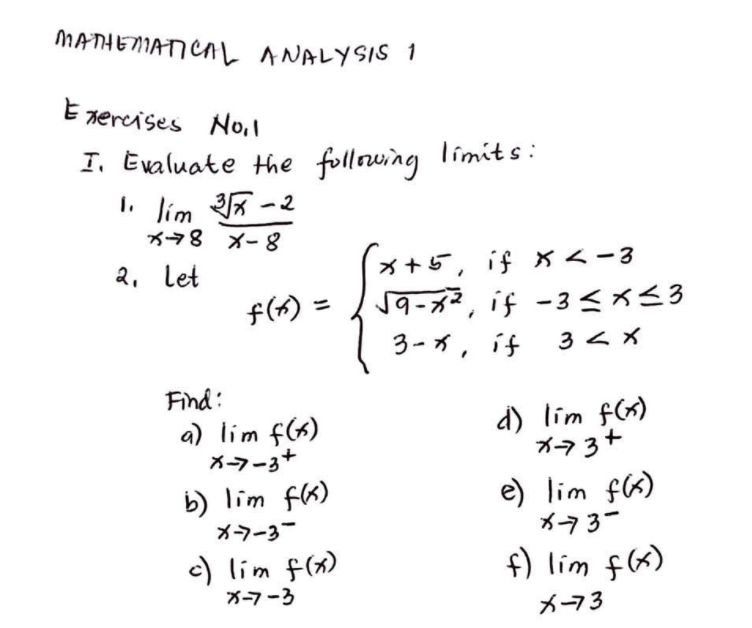 MATHEMATICAL ANALYSIS 1
Exercises No.1
I. Evaluate the following limits:
1. lim x→8 (∛x - 2)/(x - 8)
2. Let
f(x) = { x + 5, if x < -3
√(9 - x²), if -3 ≤ x ≤ 3
3 - x, if 3 < x
Find:
a) lim f(x)
x→-3⁺
b) lim f(x)
x→-3⁻
c) lim f(x)
x→-3
d) lim f(x)
x→3⁺
e) lim f(x)
x→3⁻
f) lim f(x)
x→3